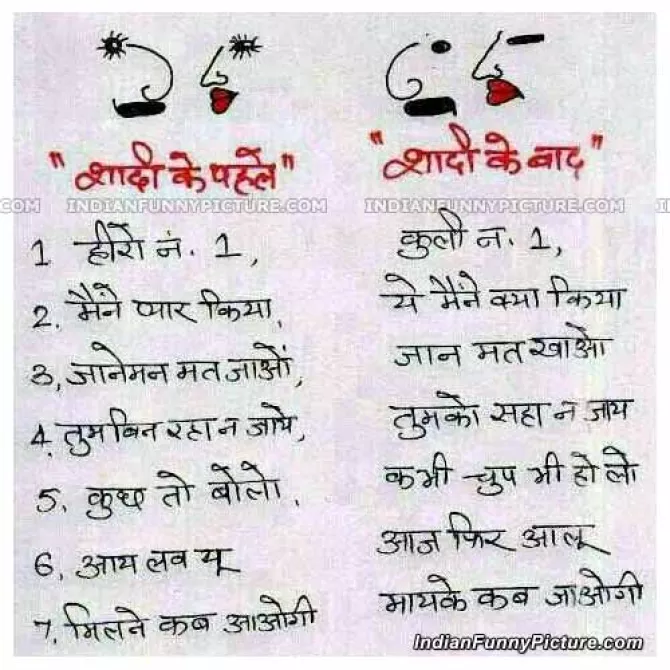 "शादी के पहले" "शादी के बाद"
INDIANFUNNYPICTURE.COM INDIANFUNNYPICTURE.COM
1 हीरो नं. 1, कुली न. 1,
2. मैंने प्यार किया, ये मैंने क्या किया
3, जानेमन मत जाओं, जान मत खाओ
4, तुम बिन रहा न जाये, तुमको सहा न जाय
5. कुछ तो बोलो, कभी चुप भी हो लो
6, आय लव यू आज फिर आलू
7, मिलने कब आओगी मायके कब जाओगी
IndianFunnyPicture.com